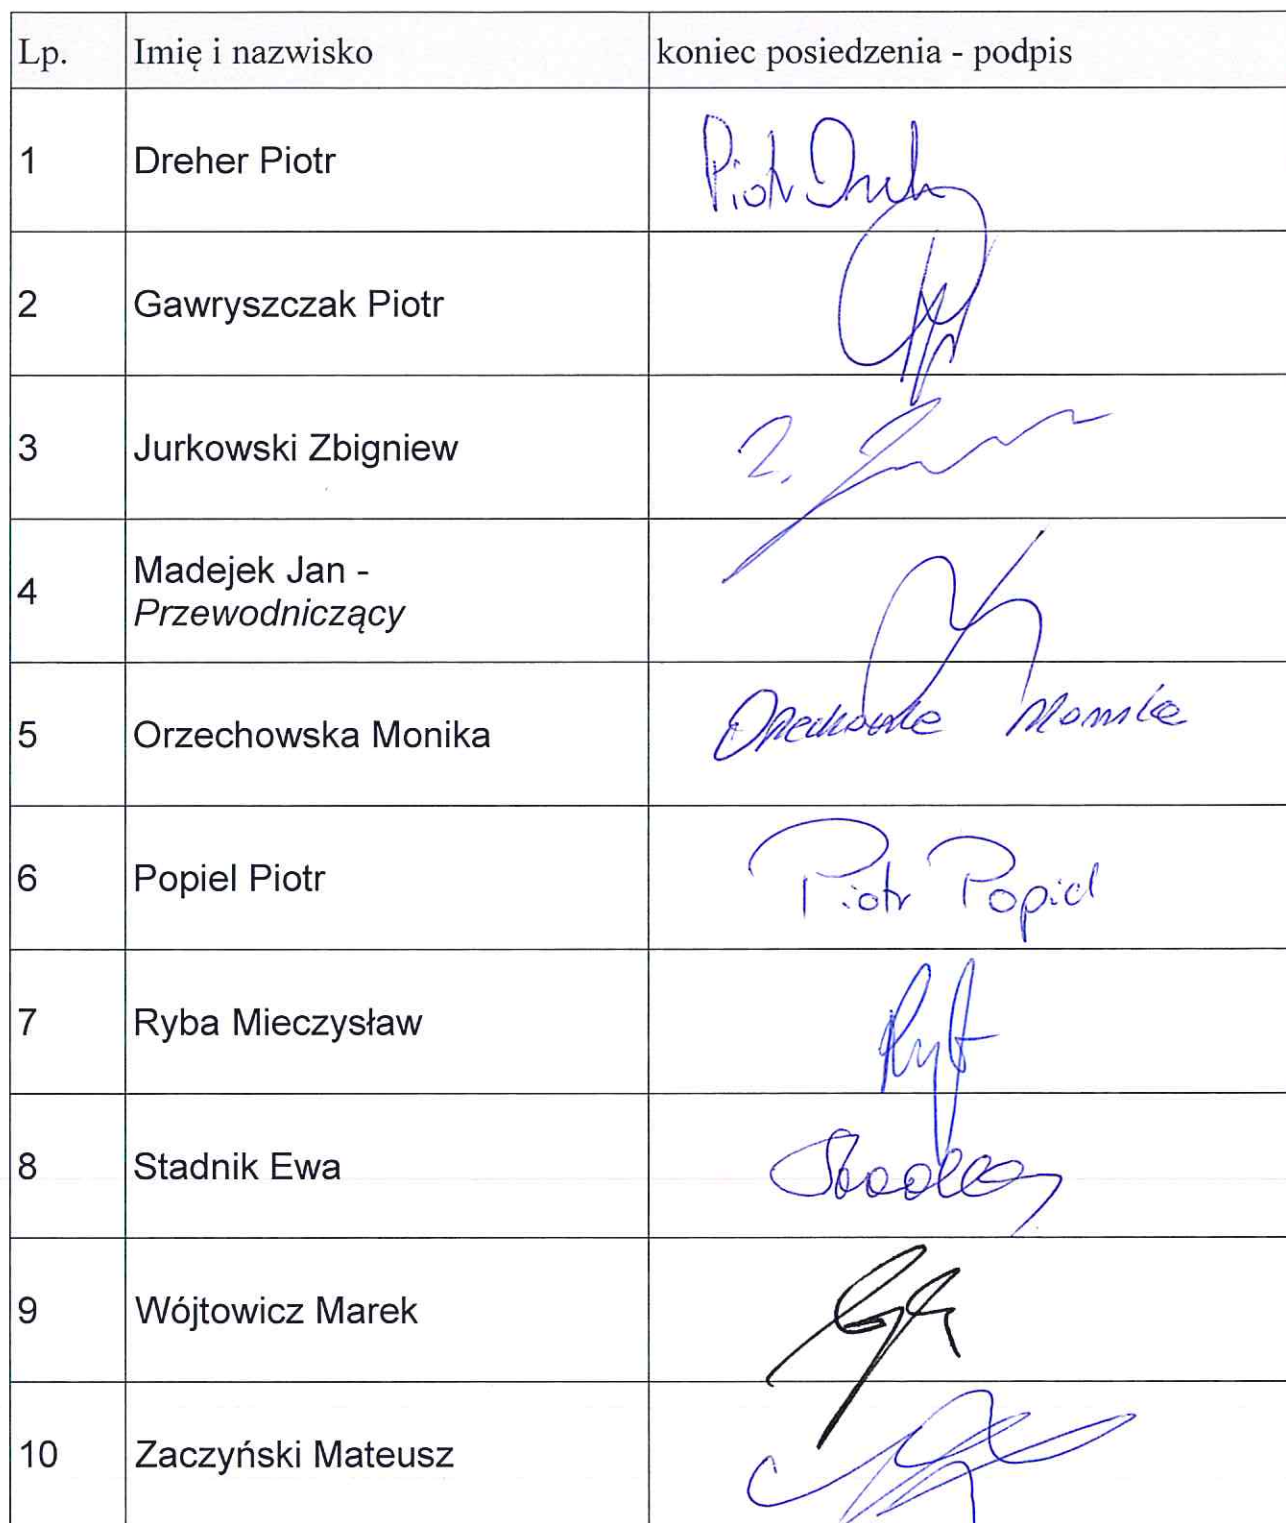 Lp. Imię i nazwisko koniec posiedzenia - podpis
1 Dreher Piotr Piotr
2 Gawryszczak Piotr
3 Jurkowski Zbigniew Z.
4 Madejek Jan -
Przewodniczący
5 Orzechowska Monika Orzechowska Monika
6 Popiel Piotr Piotr Popiel
7 Ryba Mieczysław
8 Stadnik Ewa
9 Wójtowicz Marek
10 Zaczyński Mateusz